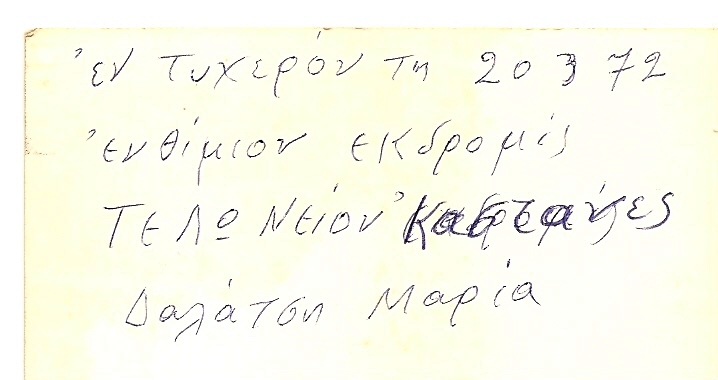 ἐν τυχερόν τη 20 3 72
ἐνθίμιον εκδρομίς
ΤΕΛΩΝείον Καστανιές
Δαλάτση Μαρία